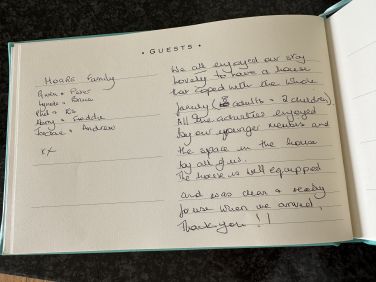 • GUESTS •
Hoars Family
Peter
Lynda + Bruce
Phil +
Freddie
+ Andrew
xx
We all enjoyed our stay
Lovely to have a house
that coped with the whole
family (8 adults + 2 children)
All the activities enjoyed
by our younger members and
the space in the house
by all of us.
The house is well equipped
and was clean & ready
for use when we arrived.
Thank you!!